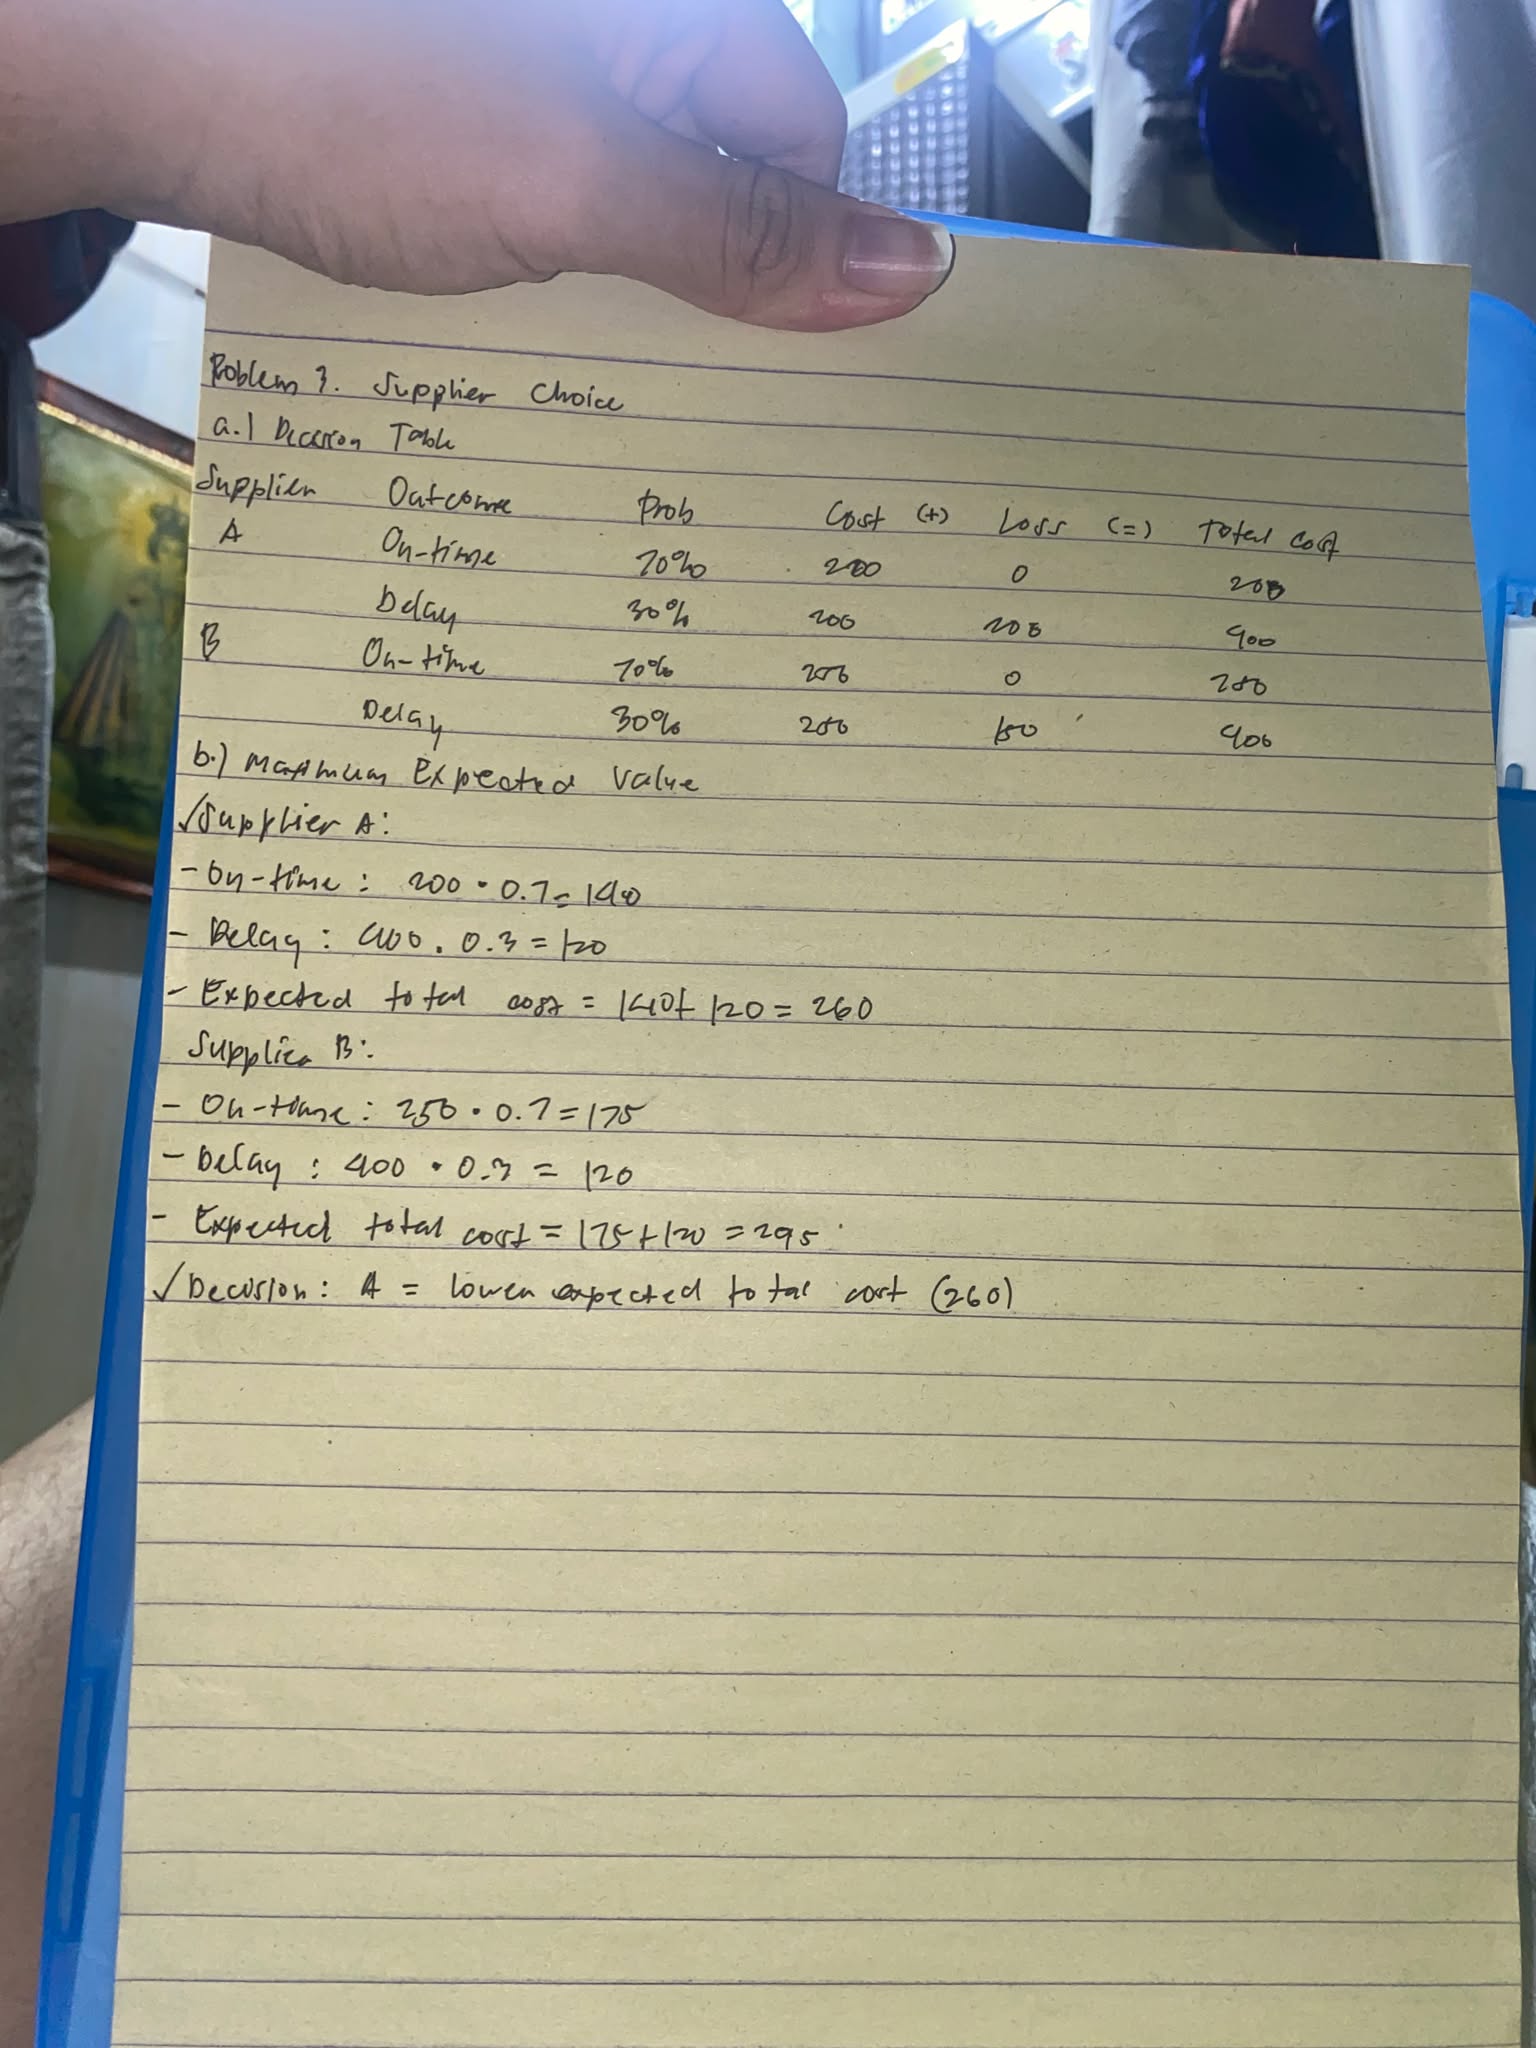 Problem 3. Supplier Choice
a.) Decision Table
Supplier Outcome Prob Cost (+) Loss (=) Total cost
A On-time 70% 200 0 200
Delay 30% 200 200 400
B On-time 70% 250 0 250
Delay 30% 250 150 400
b.) Maximum Expected Value
✓Supplier A:
- On-time : 200 • 0.7 = 140
- Delay : 400 . 0.3 = 120
- Expected total cost = 140 + 120 = 260
Supplier B:
- On-time : 250 • 0.7 = 175
- Delay : 400 • 0.3 = 120
- Expected total cost = 175 + 120 = 295
✓Decision : A = lower expected total cost (260)